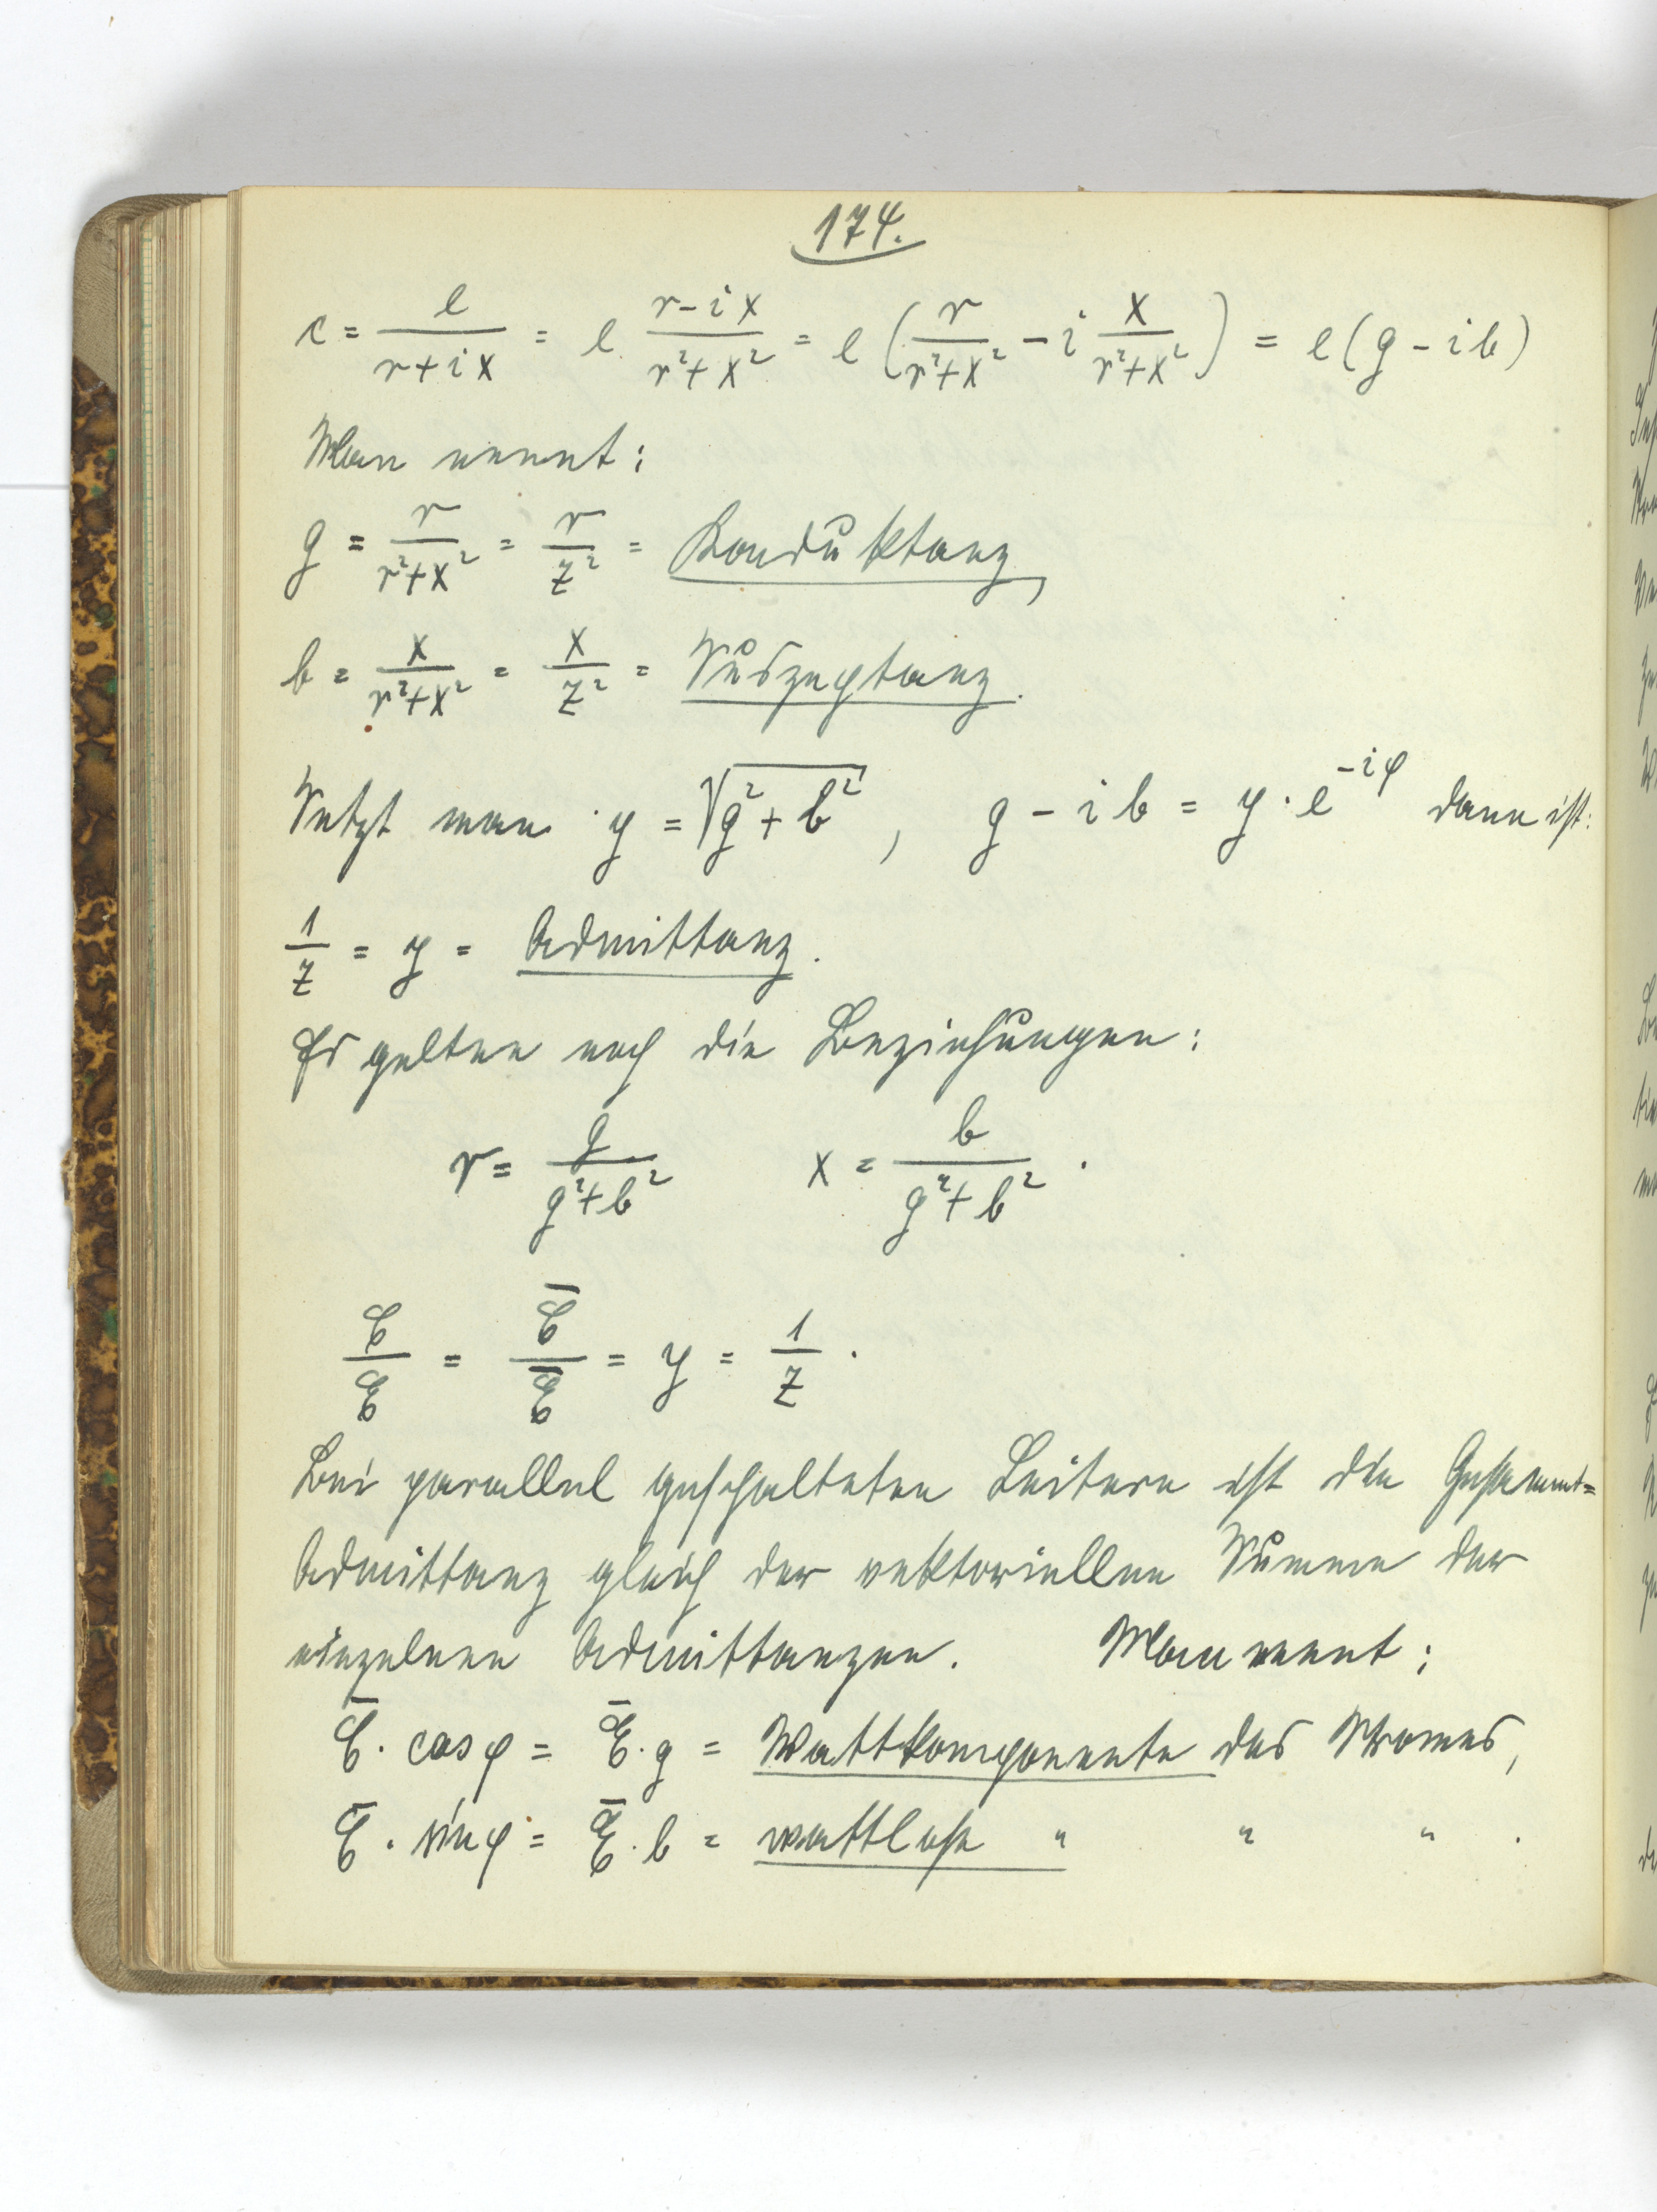 174.
c = e/(r+ix) = e · (r-ix)/(r²+x²) = e (r/(r²+x²) - i x/(r²+x²)) = e(g - ib)
Man nennt:
g = r/(r²+x²) = r/z² = Konduktanz,
b = x/(r²+x²) = x/z² = Suszeptanz.
Setzt man y = √(g² + b²), g - ib = y · e^(-iφ) dann ist:
1/z = y = Admittanz.
Es gelten noch die Beziehungen:
r = g/(g²+b²) x = b/(g²+b²).
ℭ/𝔈 = ℭ̄/𝔈̄ = y = 1/z.
Bei parallel geschalteten Leitern ist die Gesammt=
Admittanz gleich der vektoriellen Summe der
einzelnen Admittanzen. Man nennt:
ℭ̄ · cos φ = 𝔈̄ · g = Wattkomponente des Stromes,
ℭ̄ · sin φ = 𝔈̄ · b = wattlose " " " .